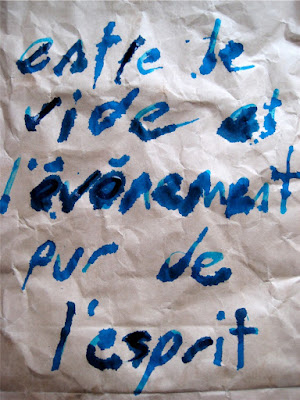 estle le
vide et
l'évènement
pur de
l'esprit